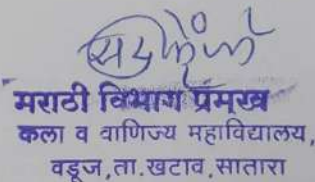 मराठी विभाग प्रमुख
कला व वाणिज्य महाविद्यालय,
वडूज,ता.खटाव,सातारा